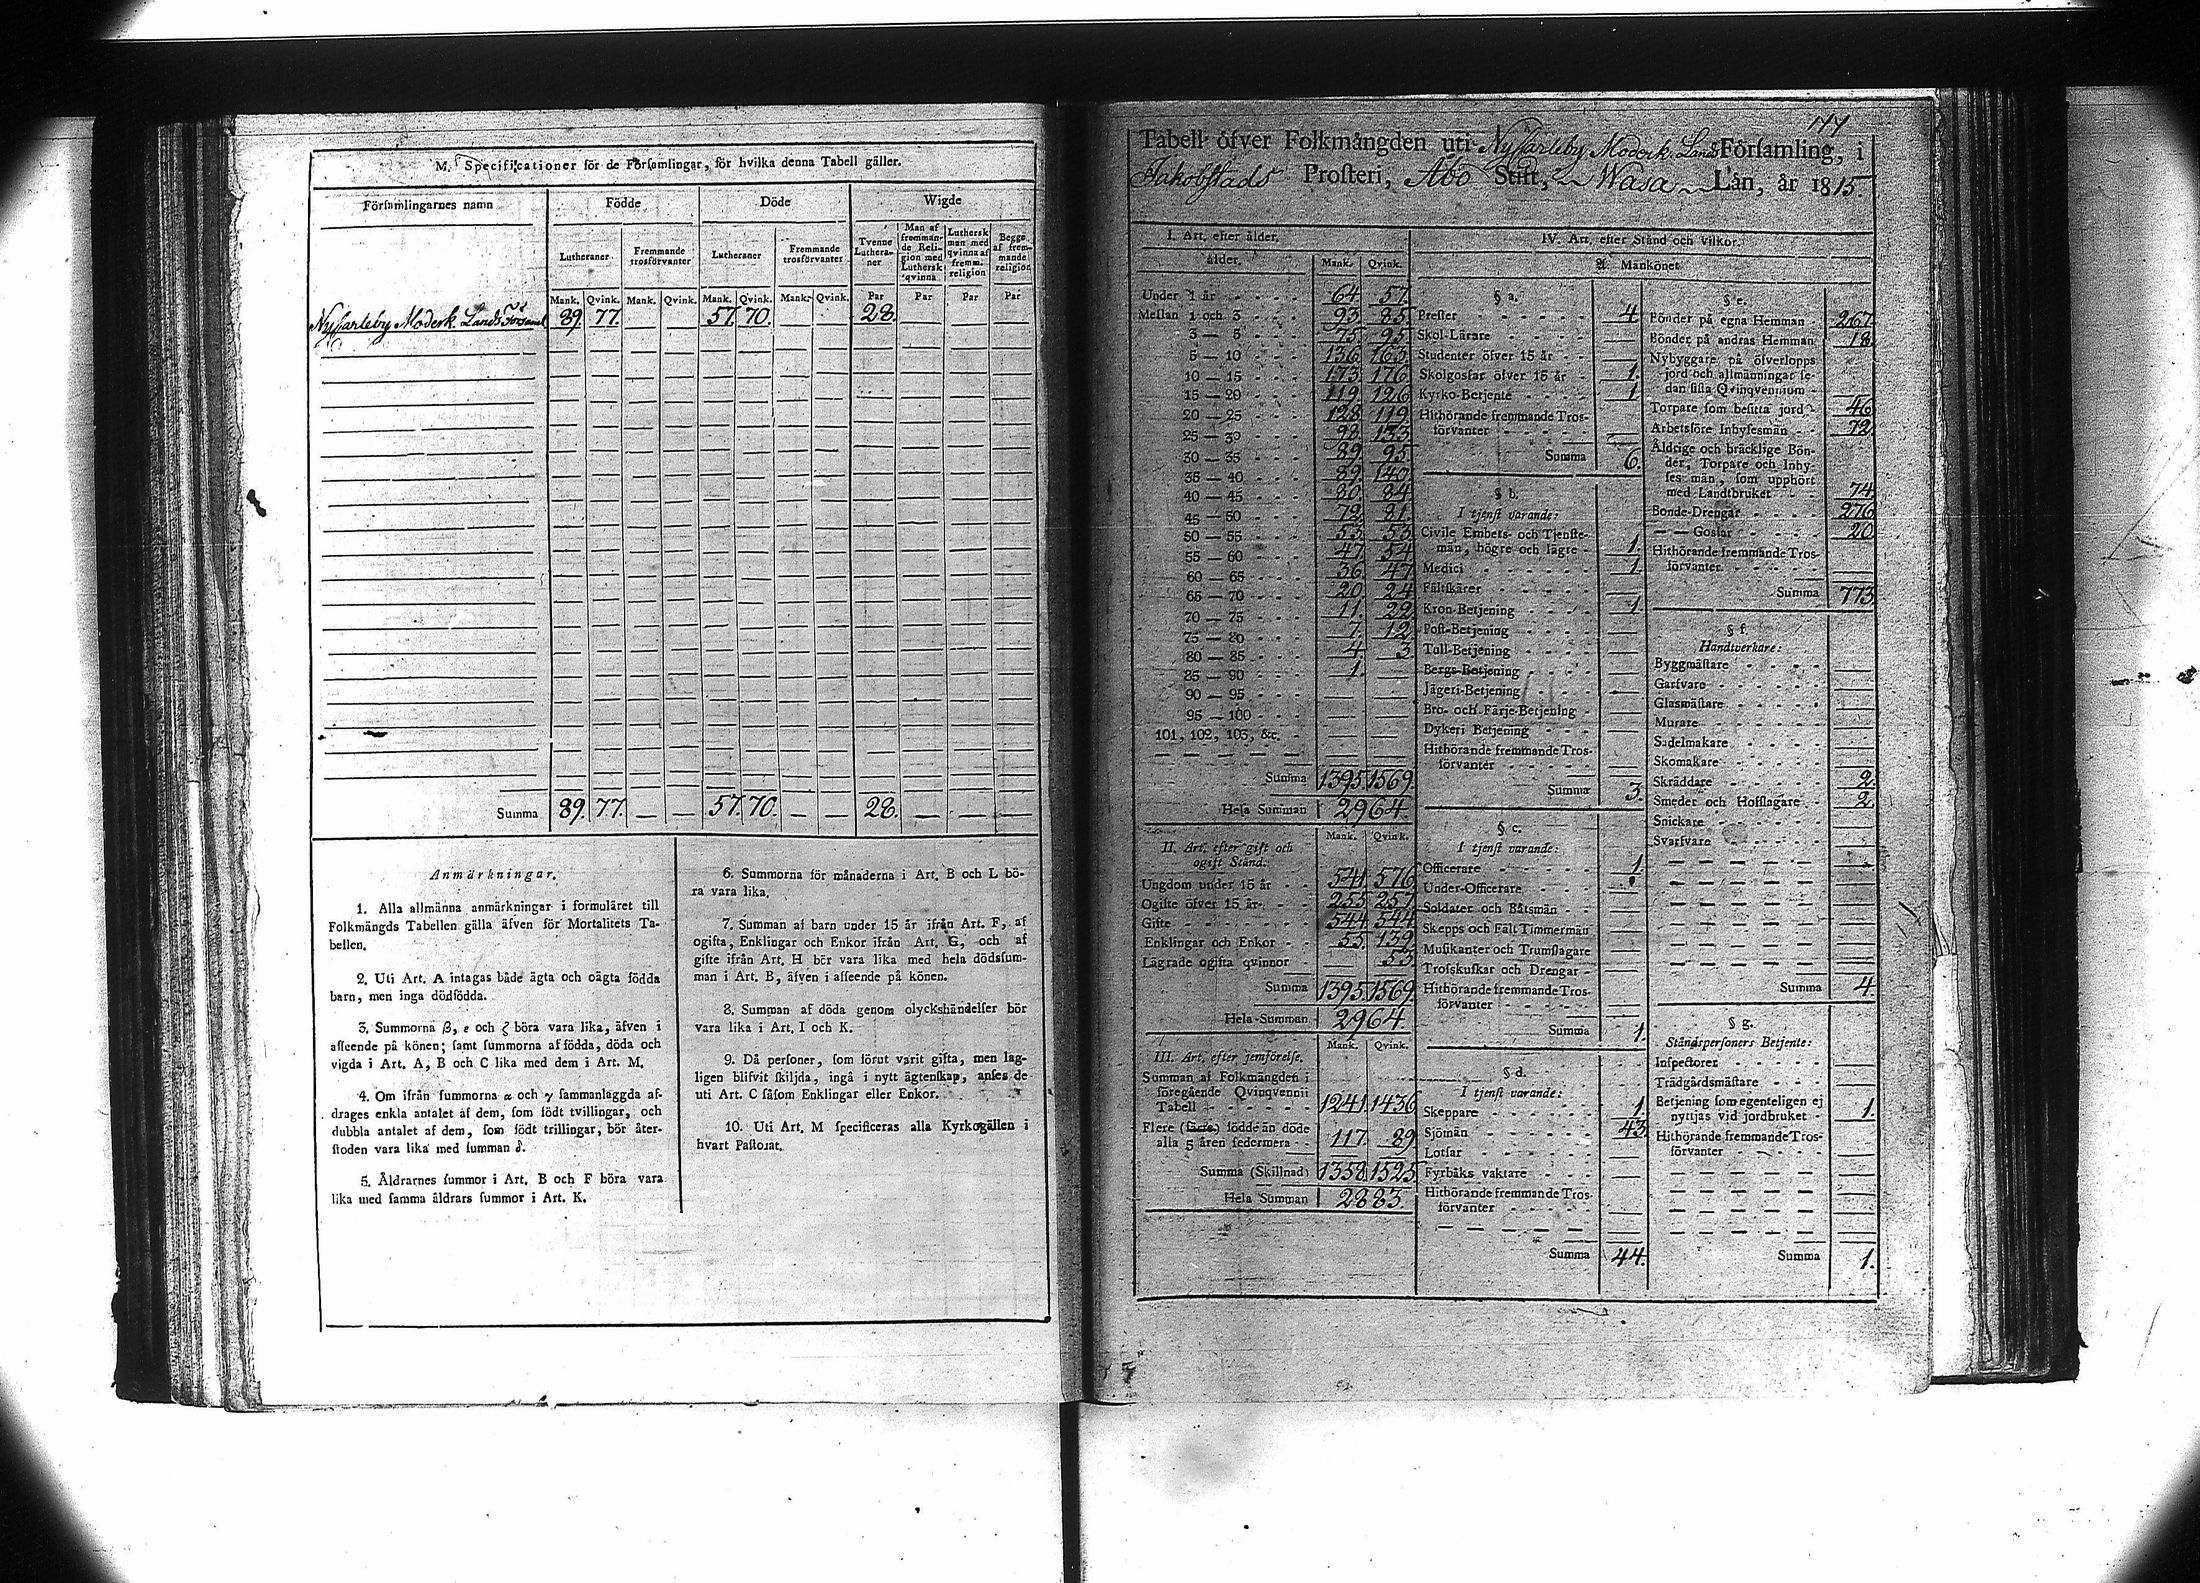 M. Specificationer för de Förſamlingar, för hvilka denna Tabell gäller.
Förſamlingarnes namn
Födde
Döde
Wigde
Lutheraner
Fremmande trosförvanter
Lutheraner
Fremmande trosförvanter
Tvenne Lutheraner
Man af fremmande Religion med Luthersk qvinna
Luthersk man med qvinna af fremm. religion
Begge af fremmande religion
Mank. Qvink. Mank. Qvink. Mank. Qvink. Mank. Qvink. Par Par Par Par
Nyſarleby Moderk. Lands Förſaml 89. 77. 57. 70. 28.
Summa 89. 77. — — 57. 70. — — 28. — — —
Anmärkningar.
1. Alla allmänna anmärkningar i formuläret till
Folkmängds Tabellen gälla äfven för Mortalitets Ta-
bellen.
2. Uti Art. A intagas både ägta och oägta födda
barn, men inga dödfödda.
3. Summorna β, ε och ζ böra vara lika, äfven i
afſeende på könen; ſamt ſummorna af födda, döda och
vigda i Art. A, B och C lika med dem i Art. M.
4. Om ifrån ſummorna α och γ ſammanlaggda af-
drages enkla antalet af dem, ſom födt tvillingar, och
dubbla antalet af dem, ſom födt trillingar, bör åter-
ſtoden vara lika med ſumman δ.
5. Åldrarnes ſummor i Art. B och F böra vara
lika med ſamma åldrars ſummor i Art. K.
6. Summorna för månaderna i Art. B och L bö-
ra vara lika.
7. Summan af barn under 15 år ifrån Art. F, af
ogifta, Enklingar och Enkor ifrån Art. G, och af
gifte ifrån Art. H bör vara lika med hela dödsſum-
man i Art. B, äfven i afſeende på könen.
8. Summan af döda genom olyckshändelſer bör
vara lika i Art. I och K.
9. Då perſoner, ſom förut varit gifta, men lag-
ligen blifvit ſkiljda, ingå i nytt ägtenſkap, anſes de
uti Art. C ſåſom Enklingar eller Enkor.
10. Uti Art. M ſpecificeras alla Kyrkogällen i
hvart Paſtorat.
Tabell öfver Folkmängden uti Nyſarleby Moderk. Lands Förſamling, i
Jakobſtads Proſteri, Åbo Stift, Wasa Län, år 1815.
I. Art. efter ålder.
ålder. Mank. Qvink.
Under 1 år 64 57
Mellan 1 och 3 93 85
3 — 5 75 95
5 — 10 136 163
10 — 15 173 176
15 — 20 119 126
20 — 25 128 119
25 — 30 98 133
30 — 35 89 95
35 — 40 89 140
40 — 45 80 84
45 — 50 72 81
50 — 55 53 53
55 — 60 47 54
60 — 65 36 47
65 — 70 20 24
70 — 75 11 22
75 — 80 7 12
80 — 85 4 3
85 — 90 1. —
90 — 95 — —
95 — 100 — —
101, 102, 103, &c. — —
Summa 1395. 1569.
Hela Summan 2964.
Mank. Qvink.
II. Art. efter gift och
ogift Stånd.
Ungdom under 15 år 541 576
Ogifte öfver 15 år 255 257
Gifte 544 544
Enklingar och Enkor 55 139
Lägrade ogifta qvinnor — 53
Summa 1395. 1569.
Hela Summan 2964
Mank. Qvink.
III. Art. efter jemförelſe.
Summan af Folkmängden i
föregående Qvinqvennii
Tabell 1241 1436
Flere (färre) födde än döde
alla 5 åren ſedermera 117 89
Summa (Skillnad) 1358 1525
Hela Summan 2883.
IV. Art. efter Stånd och Vilkor.
A. Mankönet
§ a.
Preſter 4
Skol-Lärare —
Studenter öfver 15 år —
Skolgoſſar öfver 15 år 1.
Kyrko-Betjente 1
Hithörande fremmande Tros-
förvanter —
Summa 6.
§ b.
I tjenſt varande:
Civile Embets- och Tjenſte-
män, högre och lägre 1.
Medici 1
Fältſkärer —
Kron-Betjening 1.
Poſt-Betjening —
Tull-Betjening —
Bergs-Betjening —
Jägeri-Betjening —
Bro- och Färje-Betjening —
Dykeri Betjening —
Hithörande fremmande Tros-
förvanter —
Summa 3.
§ c.
I tjenſt varande:
Officerare 1.
Under-Officerare
Soldater och Båtsmän —
Skepps och Fält Timmermän —
Muſikanter och Trumſlagare —
Trosſkuſkar och Drengar —
Hithörande fremmande Tros-
förvanter —
Summa 1.
§ d.
I tjenſt varande:
Skeppare 1.
Sjömän 43.
Lotſar —
Fyrbåks vaktare —
Hithörande fremmande Tros-
förvanter —
Summa 44.
§ e.
Bönder på egna Hemman 267
Bönder på andras Hemman 18
Nybyggare på öfverlopps
jord och allmänningar ſe-
dan ſiſta Qvinqvennium —
Torpare ſom beſitta jord 46
Arbetsföre Inhyſesmän 72
Åldrige och bräcklige Bön-
der, Torpare och Inhy-
ſes män, ſom upphört
med Landtbruket 74
Bonde-Drengar 276
— — Goſſar 20
Hithörande fremmande Tros-
förvanter —
Summa 773
§ f.
Handtverkare:
Byggmäſtare —
Garfvare —
Glasmäſtare —
Murare —
Sadelmakare —
Skomakare —
Skräddare 2.
Smeder och Hofſlagare 2
Snickare —
Svarfvare —
Summa 4.
§ g.
Ståndsperſoners Betjente:
Inſpectorer —
Trädgårdsmäſtare —
Betjening ſom egenteligen ej
nyttjas vid jordbruket 1.
Hithörande fremmande Tros-
förvanter —
Summa 1.